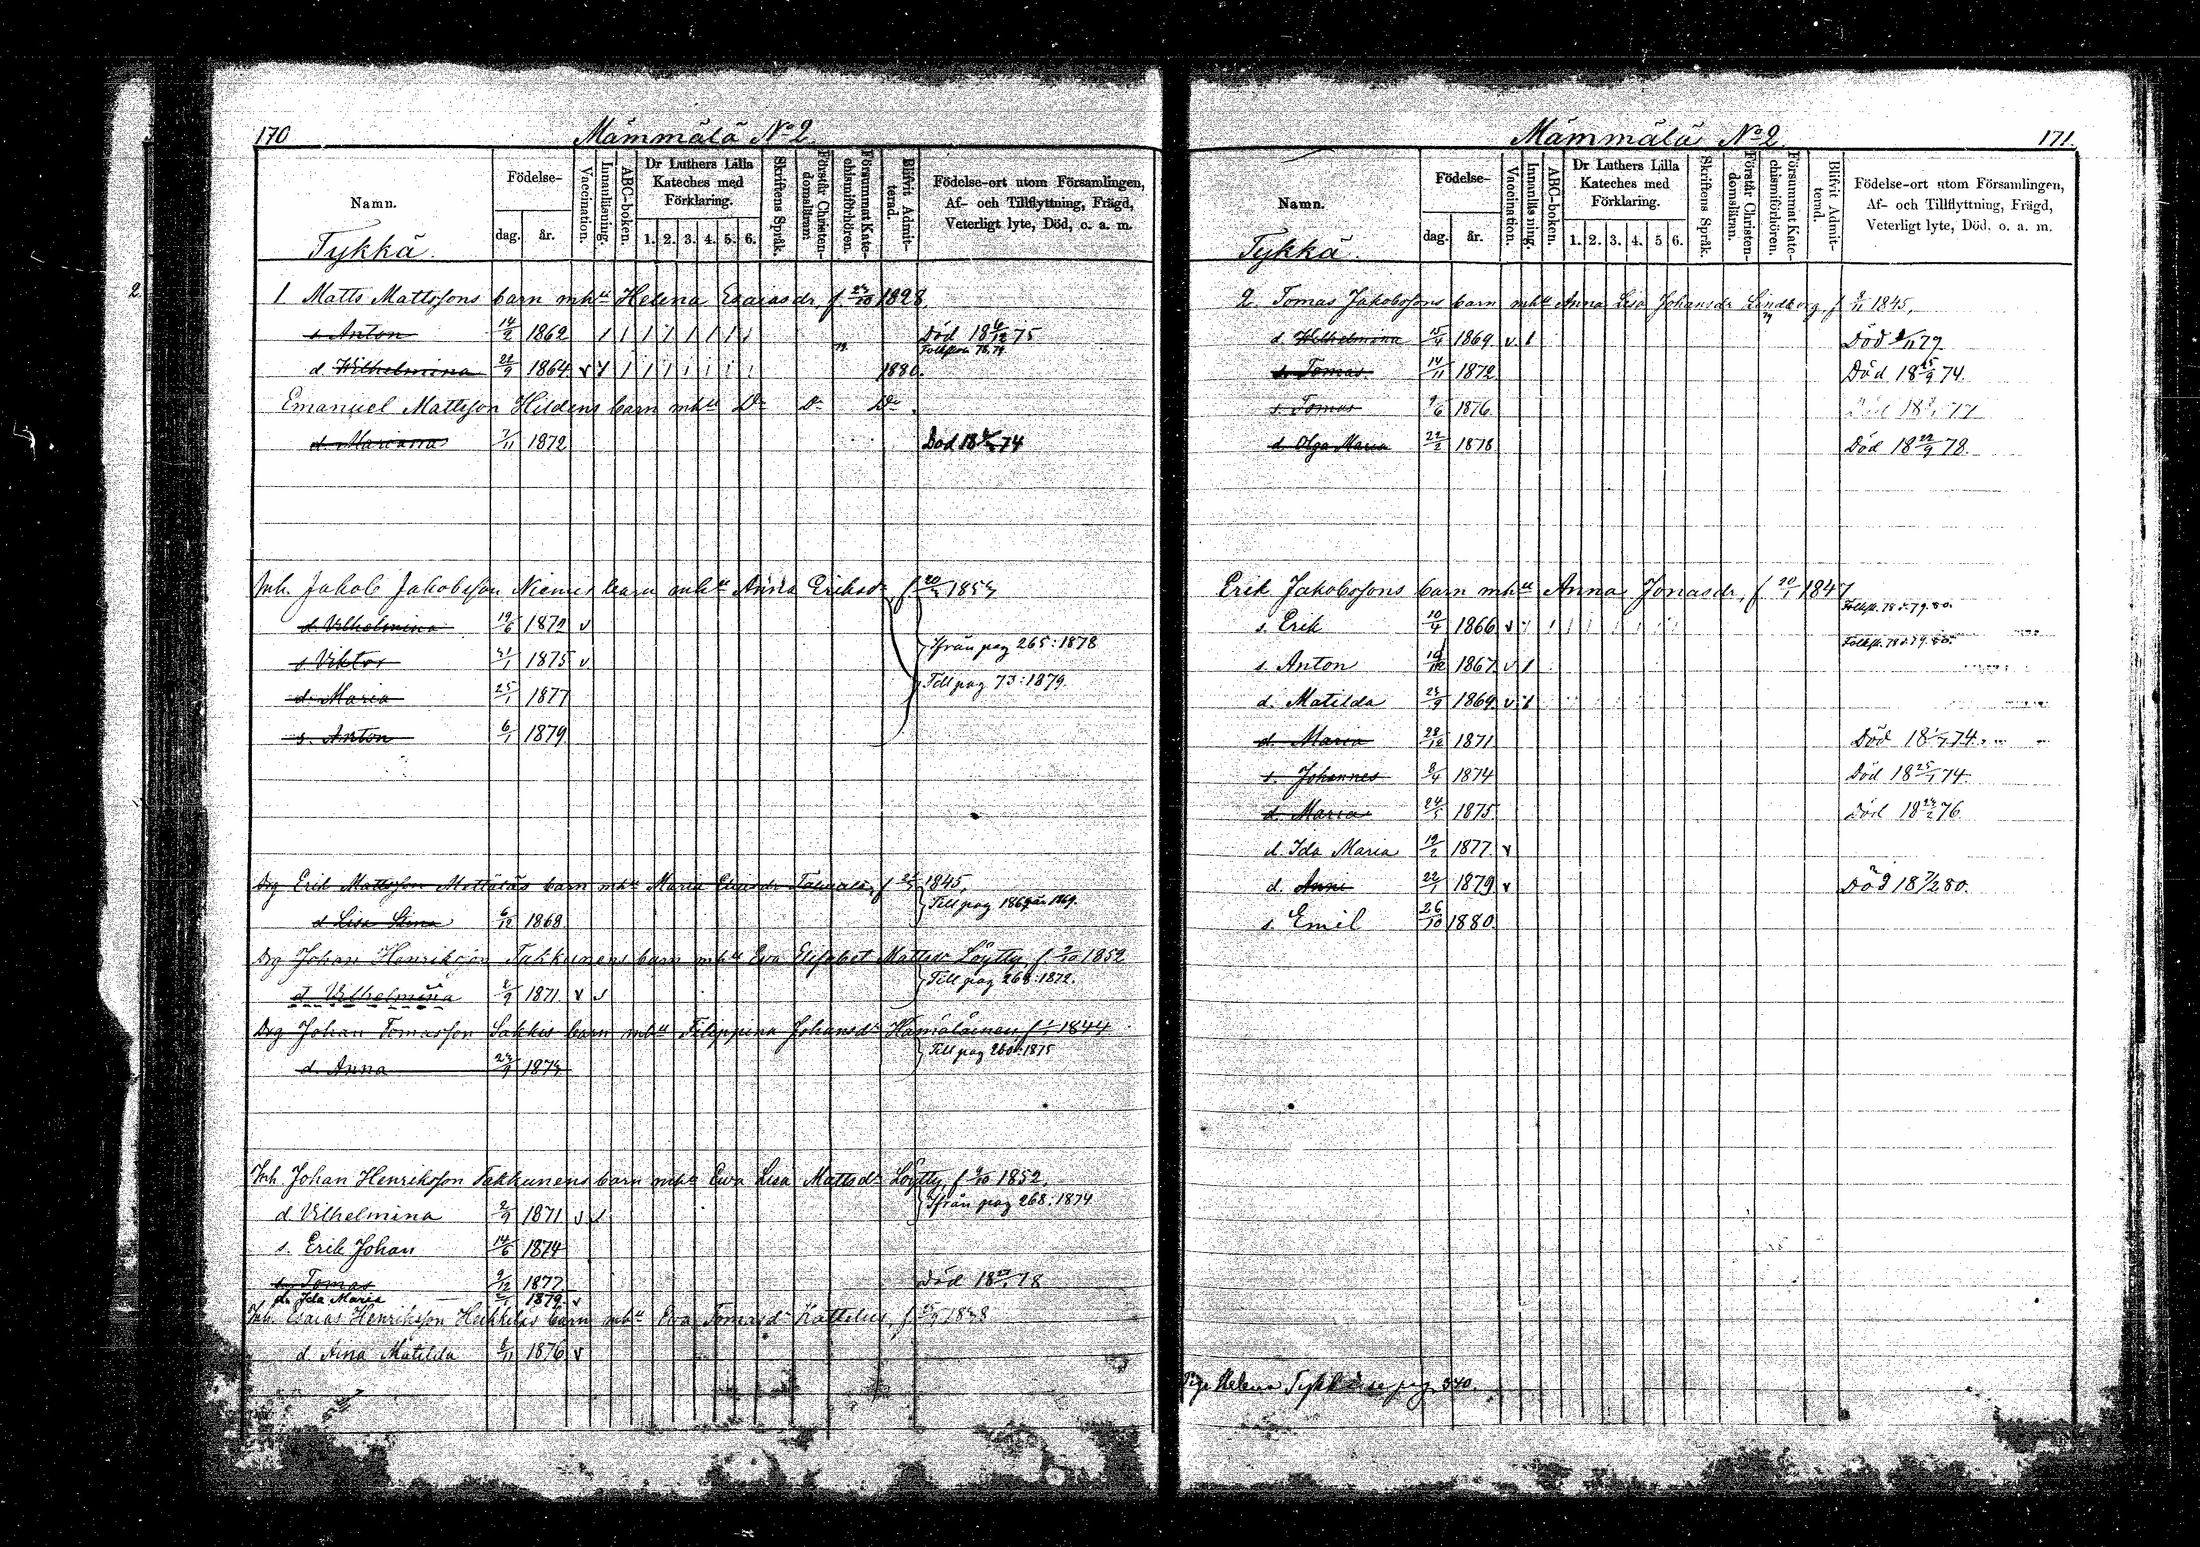 170
Mämmälä No 2.
Namn.
Födelse-
dag.
år.
Vaccination.
Innanläsning.
ABC-boken.
Dr Luthers Lilla
Kateches med
Förklaring.
1. 2. 3. 4. 5. 6.
Skriftens Språk.
Förstår Christen-
domsläran.
Försummat Kate-
chismiförhören.
Blifvit Admit-
terad.
Födelse-ort utom Församlingen,
Af- och Tillflyttning, Frägd,
Veterligt lyte, Död, o. a. m.
Tykkä.
1 Matts Mattssons barn mhu Helena Esaiasdr f 1828.
s Anton 14/2 1862 Död 18 75
d. Wilhelmina 1864 v 1880.
Emanuel Mattsson Hildens barn mhu Do Do Do
d. Marianna 7/11 1872 Död 18 74
Inh. Jakob Jakobsson Niemis barn mhu Anna Eriksdr f
d. Vilhelmina 19/6 1872 v
s Viktor 21/1 1875 v Ifrån pag 265: 1878
d. Maria 25/1 1877 Till pag 73: 1879
s. Anton 6/1 1879
Drg Erik Mattsson Mattiläs barn mhu Maria 1845.
d Lisa Stina 6/12 1868 Till pag
Drg Johan Henriksson Takkunens barn mhu Eva Elisabet Mattsdr Löytty f 9/10 1852
d Vilhelmina 2/9 1871 v Till pag 268: 1872.
Drg Johan Tomasson Sakkis barn mhu Filippina Johansdr Hämäläinen f 1844
d. Anna Till pag 260: 1875
Inh. Johan Henriksson Takkunens barn mhu Eva Lisa Mattsdr Löytty, f 9/10 1852.
d. Vilhelmina 2/9 1871 Ifrån pag 268: 1874
s. Erik Johan 14/6 1874
s. Tomas 9/12 1877 Död 18 78
d. Ida Maria 1879 v
Inh. Esaias Henriksson Heikkiläs barn mhu Eva Tomasdr Kattelus, f
d Aina Matilda 1876 v
Mämmälä No 2.
171.
Namn.
Födelse-
dag.
år.
Vaccination.
Innanläsning.
ABC-boken.
Dr Luthers Lilla
Kateches med
Förklaring.
1. 2. 3. 4. 5 6.
Skriftens Språk.
Förstår Christen-
domslärn.
Försummat Kate-
chismiförhören.
Blifvit Admit-
terad.
Födelse-ort utom Församlingen,
Af- och Tillflyttning, Frägd,
Veterligt lyte, Död, o. a. m.
Tykkä.
2. Tomas Jakobssons barn mhu Anna Lisa Johansdr Lindborg, f 1845.
d. Wilhelmina 1869 v Död 77
s. Tomas 14/11 1872 Död 18 25/9 74.
s. Tomas 9/6 1876 Död 18 77
d Olga Maria 22/2 1878 Död 18 22/9 78.
Erik Jakobssons barn mhu Anna Jonasdr, f 20/1 1847
s. Erik 10/4 1866 v
s. Anton 1867 v
d. Matilda 1869 v
d. Maria 28/12 1871 Död 18 74.
s. Johannes 8/4 1874 Död 18 74.
d. Maria 24/5 1875 Död 18 76.
d. Ida Maria 19/2 1877 v
d. Anni 22/1 1879 v Död 18 7/2 80.
s. Emil 26/10 1880.
Helena Tykkä se pag. 340.